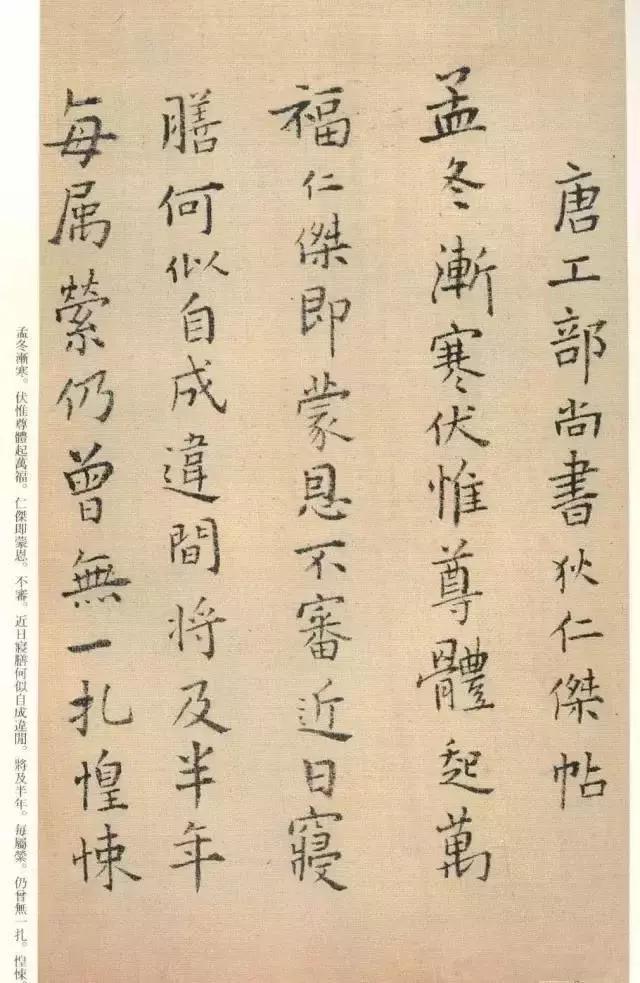 唐工部尚書狄仁傑帖
孟冬漸寒伏惟尊體起萬
福仁傑即蒙恩不審近日寢
膳何似自成違間将及半年
每属縈仍曾無一扎惶悚
孟冬漸寒。伏惟尊體起萬福。仁傑即蒙恩。不審。近日寢膳何似自成違間。將及半年。每屬縈。仍曾無一扎。惶悚。